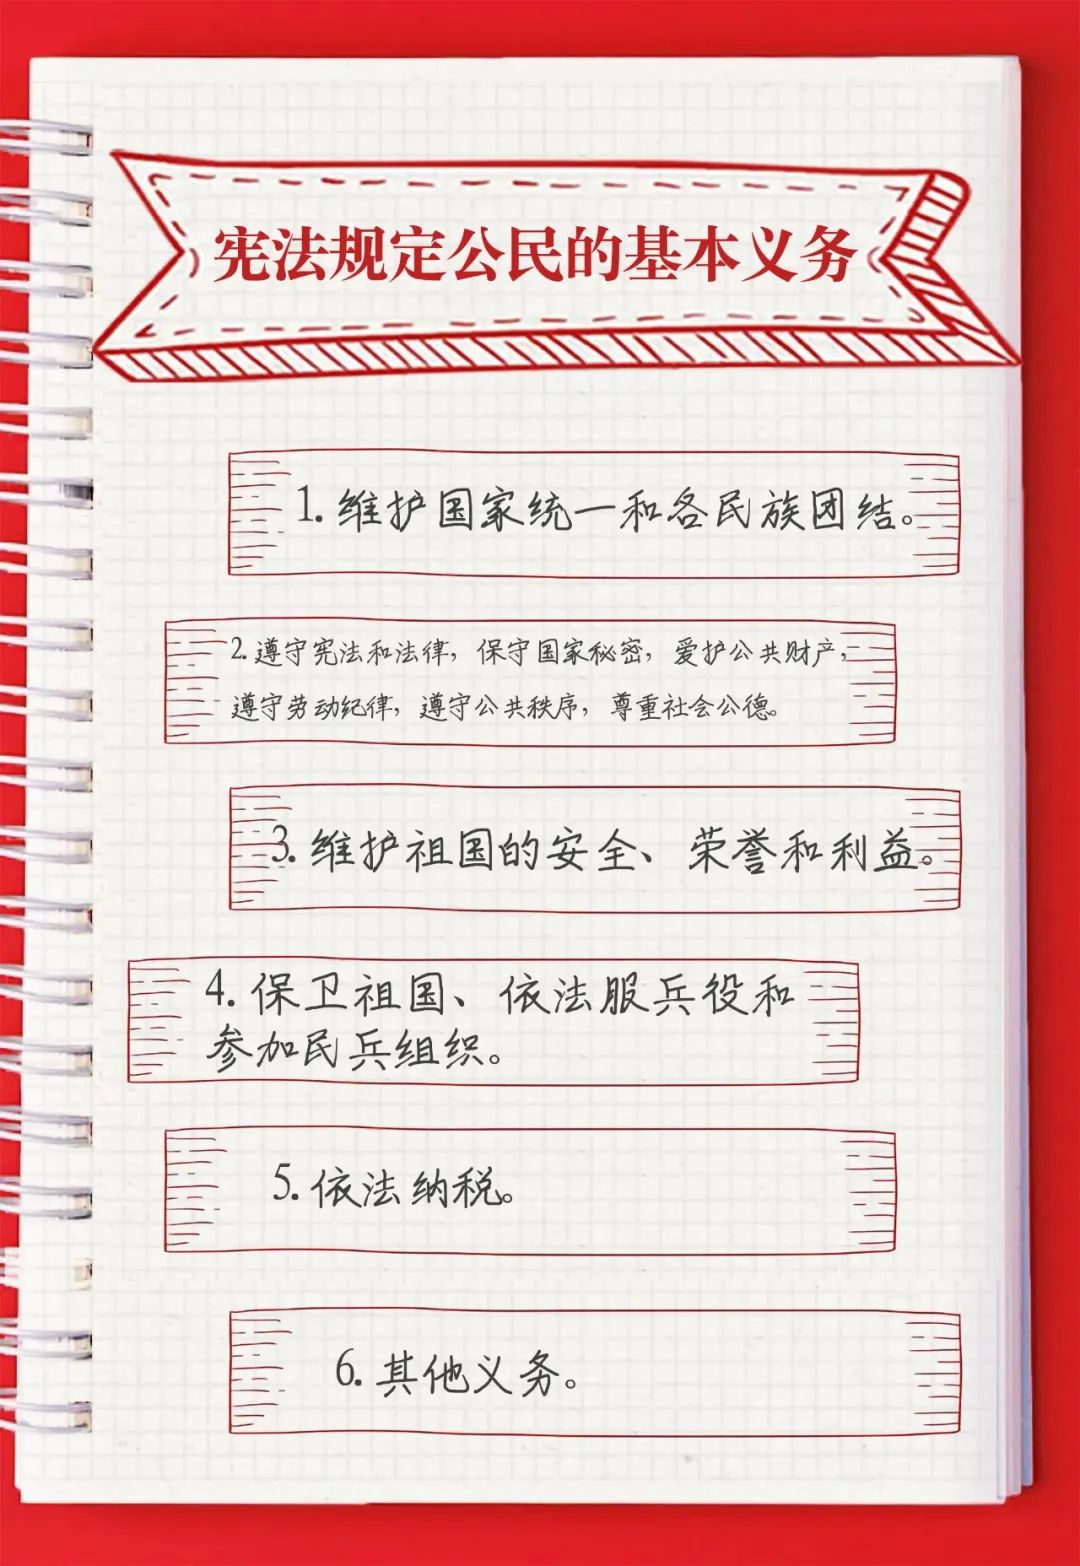 宪法规定公民的基本义务
1.维护国家统一和各民族团结。
2.遵守宪法和法律，保守国家秘密，爱护公共财产，
遵守劳动纪律，遵守公共秩序，尊重社会公德。
3.维护祖国的安全、荣誉和利益。
4.保卫祖国、依法服兵役和
参加民兵组织。
5.依法纳税。
6.其他义务。